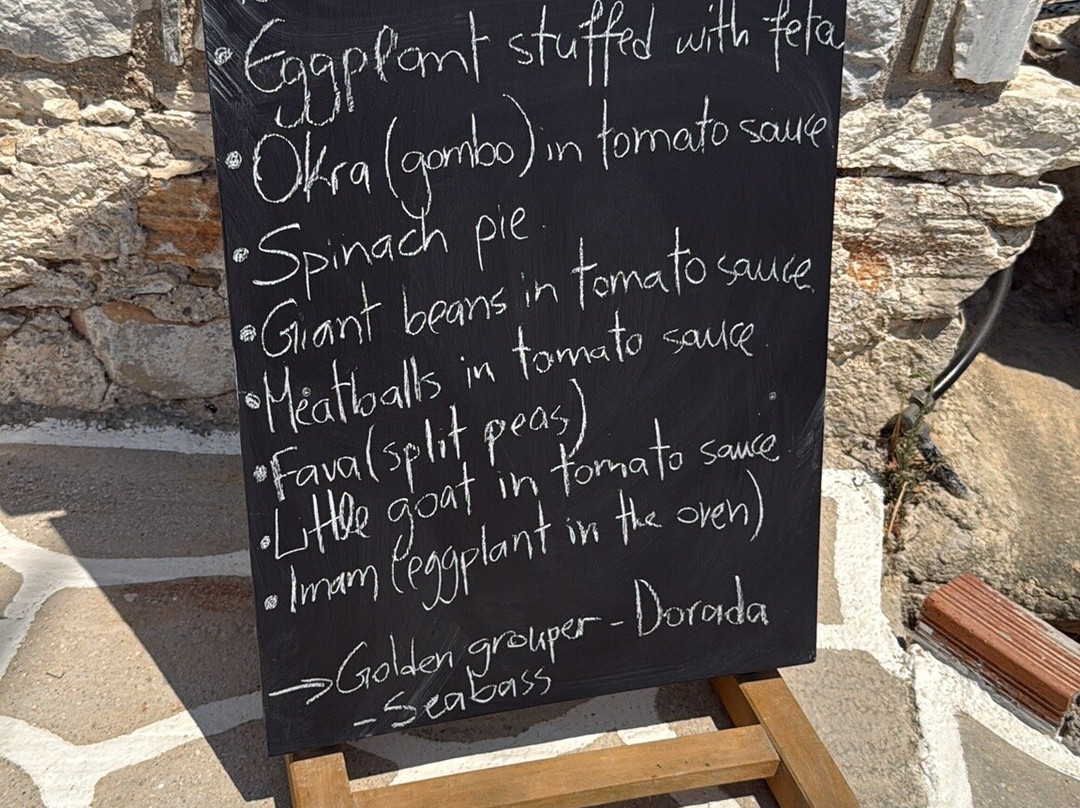 • Eggplant stuffed with feta
• Okra (gombo) in tomato sauce
• Spinach pie.
• Giant beans in tomato sauce
• Meatballs in tomato sauce.
• Fava (split peas)
• Little goat in tomato sauce.
• Imam (eggplant in the oven)
→ Golden grouper - Dorada
- Seabass